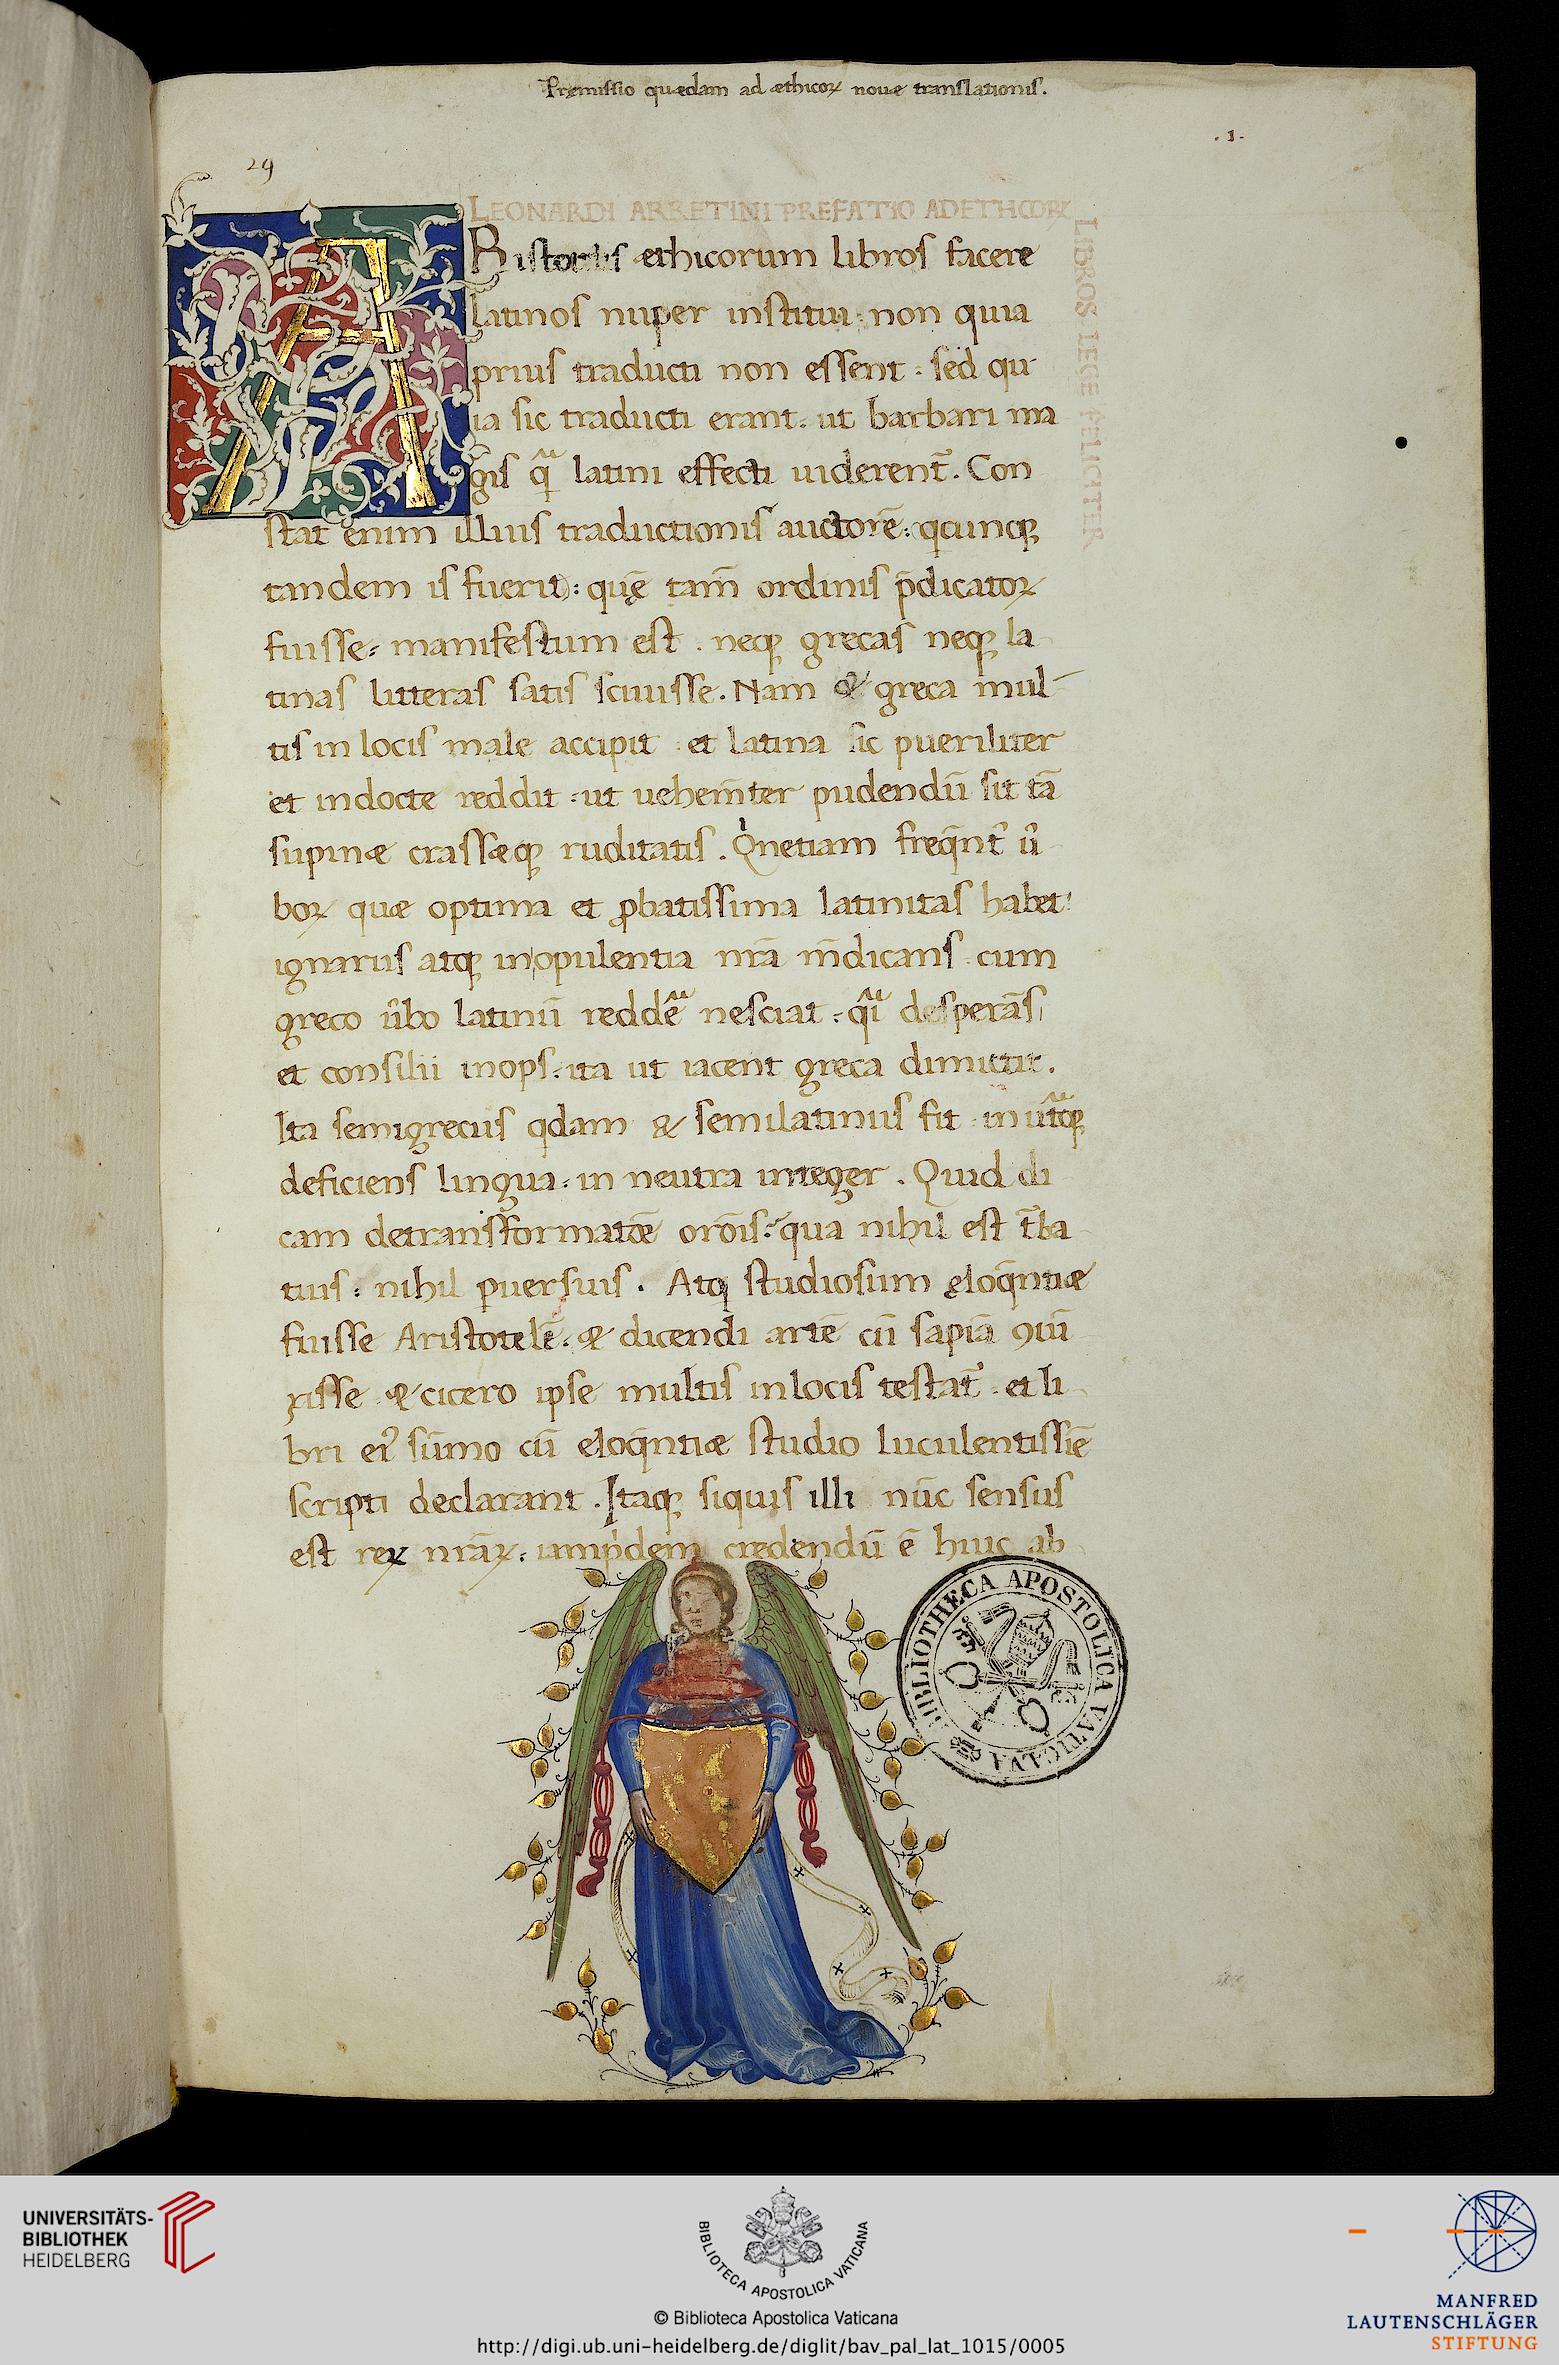 Premissio quædam ad æthicoꝝ nouæ translationis.
.1.
29
LEONARDI ARRETINI PREFATIO AD ETHICORꝝ
LIBROS LEGE FELICITER
ARistotelis ethicorum libros facere
latinos nuper institui: non quia
prius traducti non essent: sed qu
ia sic traducti erant: ut barbari ma
gis qͣ latini effecti uiderent̃. Con
stat enim illius traductionis auctorē: qcunqꝫ
tandem is fuerit: quẽ tam̃ ordinis p̄dicatoꝝ
fuisse: manifestum est. neqꝫ grecas neqꝫ la
tinas litteras satis sciuisse. Nam & greca mul
tis in locis male accipit et latina sic pueriliter
et indocte reddit: ut uehem̃ter pudendũ sit tã
supinæ crassæqꝫ ruditatis. Qͥnetiam freq̃nt᷑ u᷑
boꝝ quæ optima et ꝓbatissima latinitas habet:
ignarus atqꝫ in opulentia nr̃a m̃dicans cum
greco u᷑bo latinũ reddeͣ nesciat: qͣi desperãs
et consilii inops: ita ut iacent greca dimittit.
Ita semigrecus qdam & semilatinus fit in ut͛qꝫ
deficiens lingua: in neutra integer. Quid di
cam de transformatõe orõis: qua nihil est t᷑ba
tius: nihil ꝑuersius. Atqꝫ studiosum eloq̃ntiæ
fuisse Aristotelẽ: & dicendi artẽ cũ sapiã ꝯiũ
xisse & cicero ipse multis in locis testat᷑ et li
bri ei᷒ sũmo cũ eloq̃ntiæ studio luculentissiẽ
scripti declarant. Itaqꝫ siquis illi nũc sensus
est reꝝ nr̃aꝝ: iampͥdem credendũ ẽ huic ab
BIBLIOTHECA APOSTOLICA VATICANA
UNIVERSITÄTS-
BIBLIOTHEK
HEIDELBERG
BIBLIOTECA APOSTOLICA VATICANA
© Biblioteca Apostolica Vaticana
http://digi.ub.uni-heidelberg.de/diglit/bav_pal_lat_1015/0005
MANFRED
LAUTENSCHLÄGER
STIFTUNG